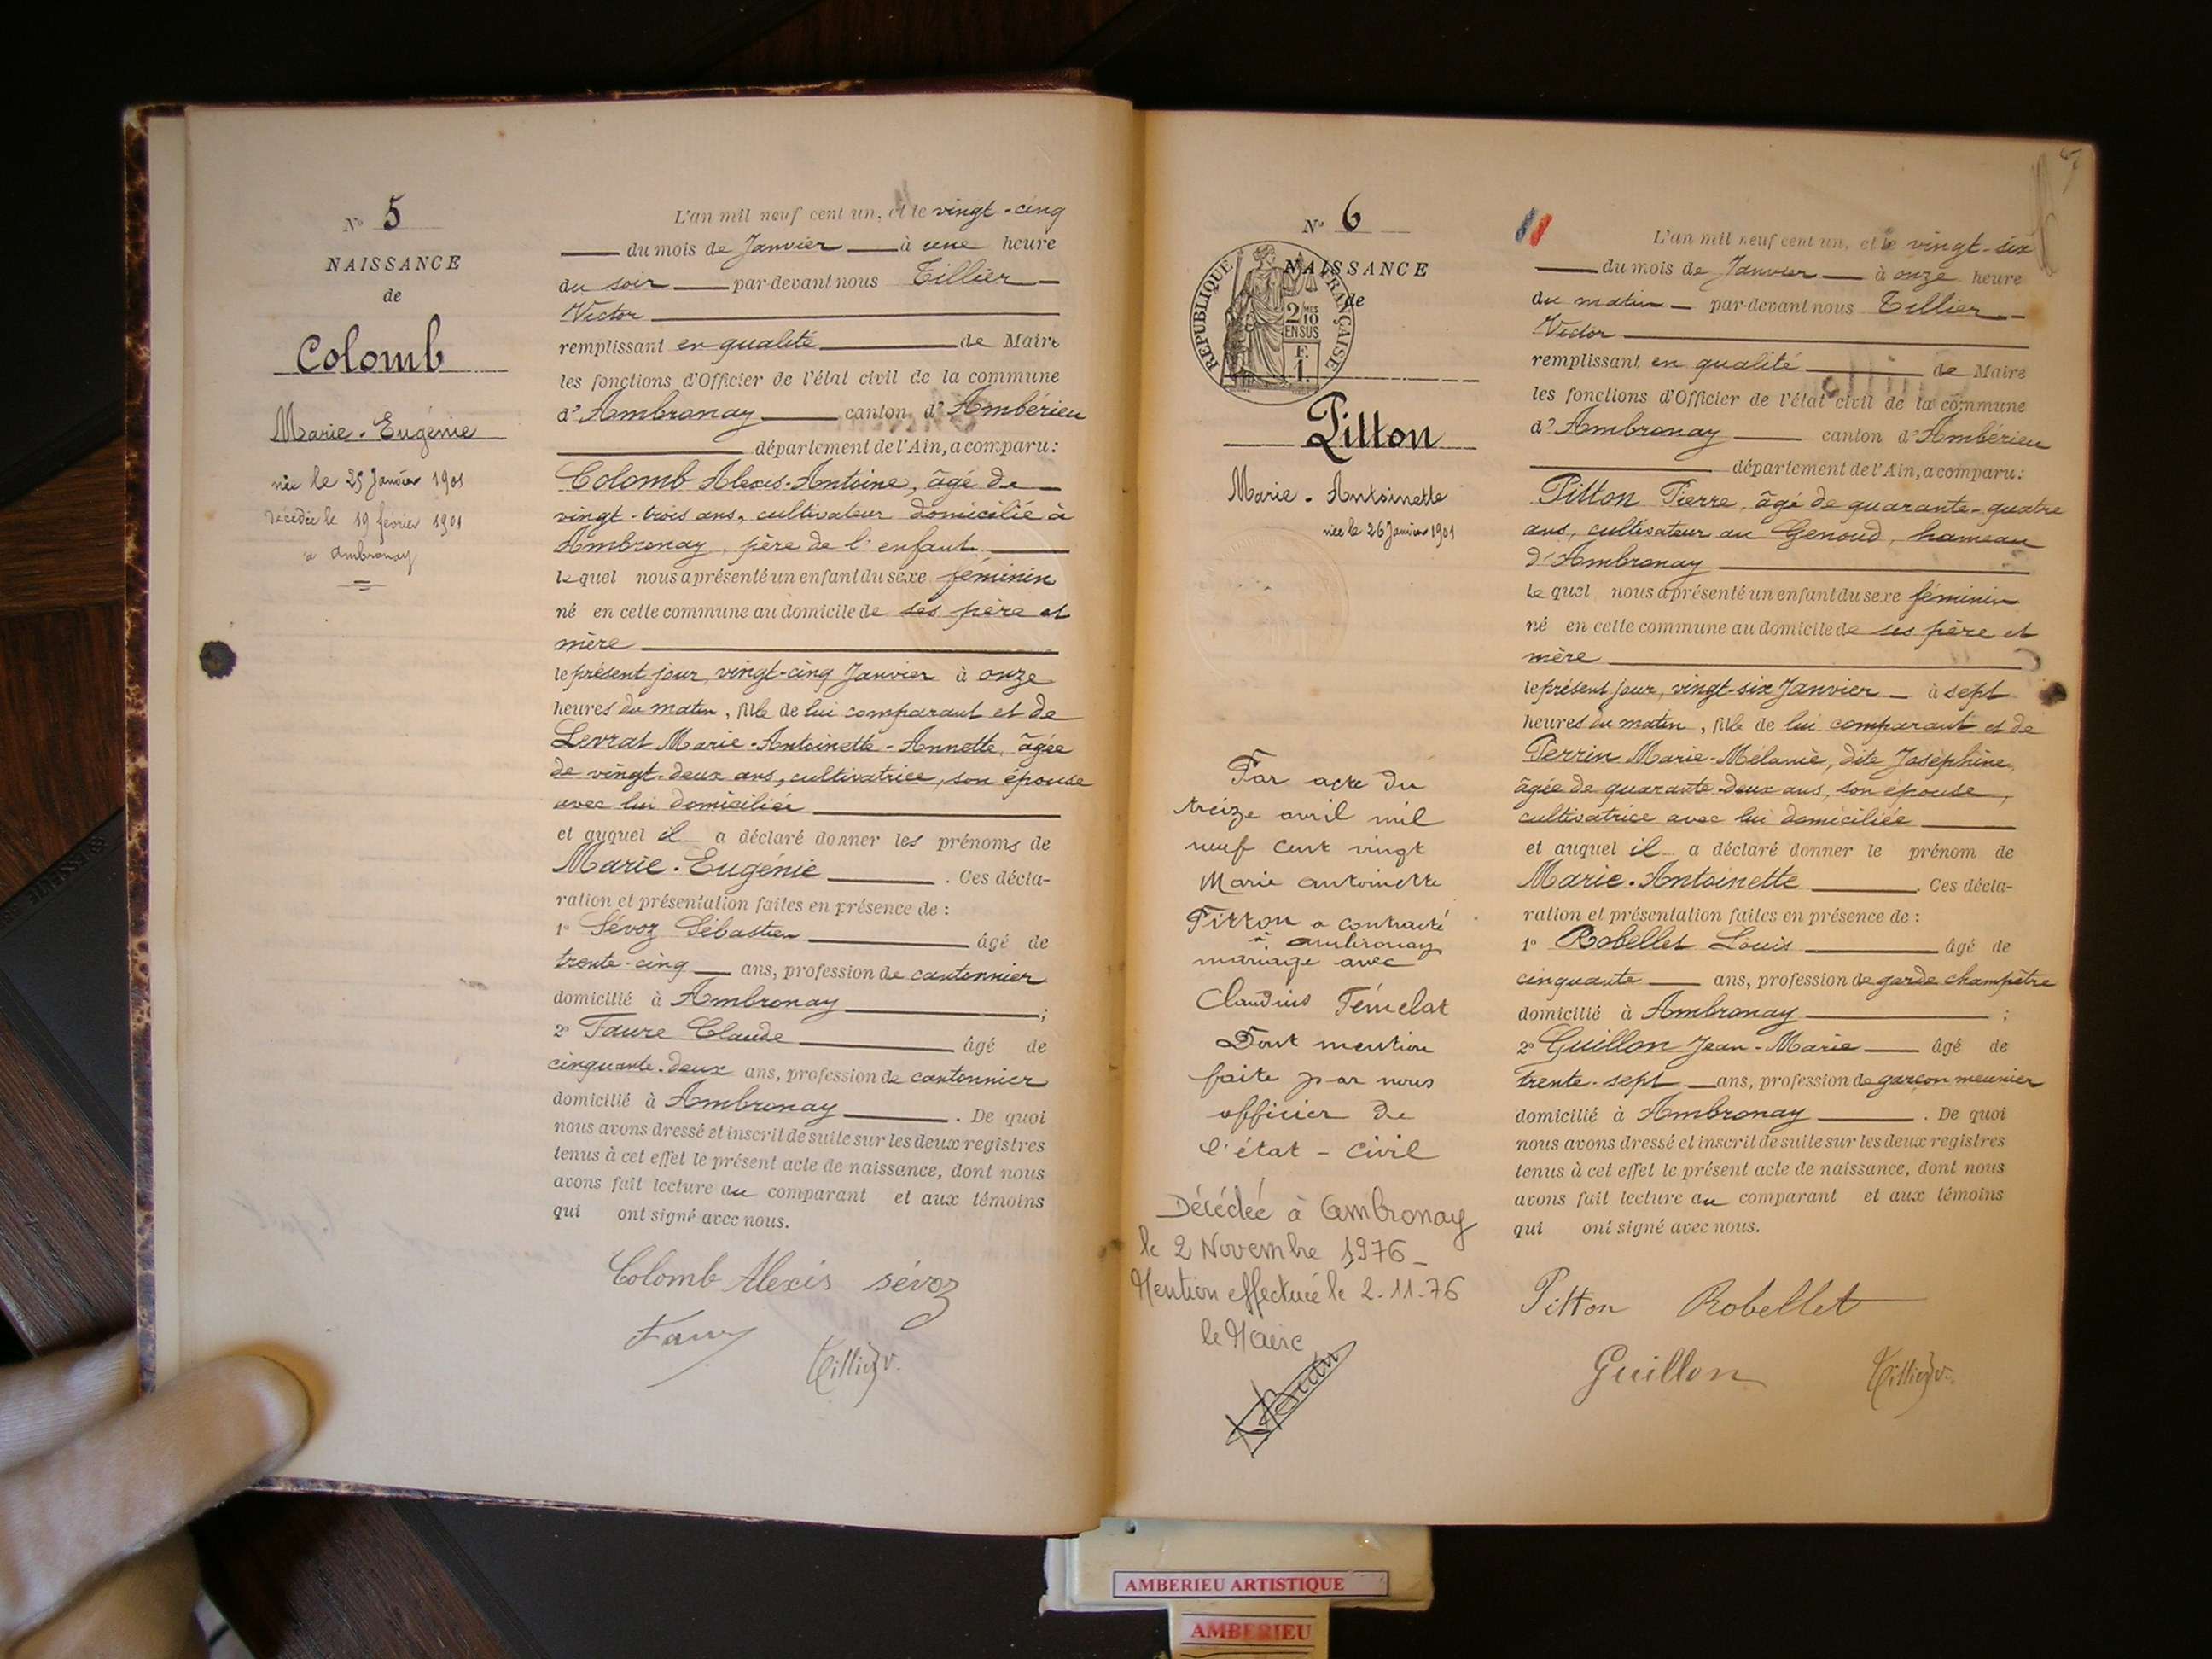 N° 5
NAISSANCE
de
Colomb
Marie-Eugénie
née le 25 Janvier 1901
décédée le 19 février 1901
à Ambronay
L'an mil neuf cent un, et le vingt-cinq
du mois de Janvier à une heure
du soir par-devant nous Tillier
Victor
remplissant en qualité de Maire
les fonctions d'Officier de l'état civil de la commune
d'Ambronay canton d'Ambérieu
département de l'Ain, a comparu :
Colomb Alexis-Antoine, âgé de
vingt-trois ans, cultivateur domicilié à
Ambronay, père de l'enfant
lequel nous a présenté un enfant du sexe féminin
né en cette commune au domicile de ses père et
mère
le présent jour, vingt-cinq Janvier à onze
heures du matin, fille de lui comparant et de
Levrat Marie-Antoinette-Annette, âgée
de vingt-deux ans, cultivatrice, son épouse
avec lui domiciliée
et auquel il a déclaré donner les prénoms de
Marie-Eugénie . Ces décla-
ration et présentation faites en présence de :
1° Sévoz Sébastien âgé de
trente-cinq ans, profession de cantonnier
domicilié à Ambronay ;
2° Faure Claude âgé de
cinquante-deux ans, profession de cantonnier
domicilié à Ambronay . De quoi
nous avons dressé et inscrit de suite sur les deux registres
tenus à cet effet le présent acte de naissance, dont nous
avons fait lecture au comparant et aux témoins
qui ont signé avec nous.
Colomb Alexis sévoz
Faure
Tillier v.
N° 6
NAISSANCE
de
RÉPUBLIQUE FRANÇAISE
2/10 MES
EN SUS
F.
1.
Pitton
Marie-Antoinette
née le 26 Janvier 1901
Par acte du
treize avril mil
neuf cent vingt
Marie Antoinette
Pitton a contracté
à Ambronay
mariage avec
Claudius Témelat
Dont mention
faite par nous
officier de
l'état-civil
Décédée à Ambronay
le 2 Novembre 1976_
Mention effectuée le 2.11.76
le Maire
L'an mil neuf cent un, et le vingt-six
du mois de Janvier à onze heure
du matin par-devant nous Tillier
Victor
remplissant en qualité de Maire
les fonctions d'Officier de l'état civil de la commune
d'Ambronay canton d'Ambérieu
département de l'Ain, a comparu :
Pitton Pierre, âgé de quarante-quatre
ans, cultivateur au Genoud, hameau
d'Ambronay
lequel nous a présenté un enfant du sexe féminin
né en cette commune au domicile de ses père et
mère
le présent jour, vingt-six Janvier à sept
heures du matin, fille de lui comparant et de
Perrin Marie-Mélanie, dite Joséphine,
âgée de quarante-deux ans, son épouse,
cultivatrice avec lui domiciliée
et auquel il a déclaré donner le prénom de
Marie-Antoinette . Ces décla-
ration et présentation faites en présence de :
1° Robellet Louis âgé de
cinquante ans, profession de garde champêtre
domicilié à Ambronay ;
2° Guillon Jean-Marie âgé de
trente-sept ans, profession de garçon meunier
domicilié à Ambronay . De quoi
nous avons dressé et inscrit de suite sur les deux registres
tenus à cet effet le présent acte de naissance, dont nous
avons fait lecture au comparant et aux témoins
qui ont signé avec nous.
Pitton Robellet
Guillon Tillier v.
AMBERIEU ARTISTIQUE
AMBERIEU